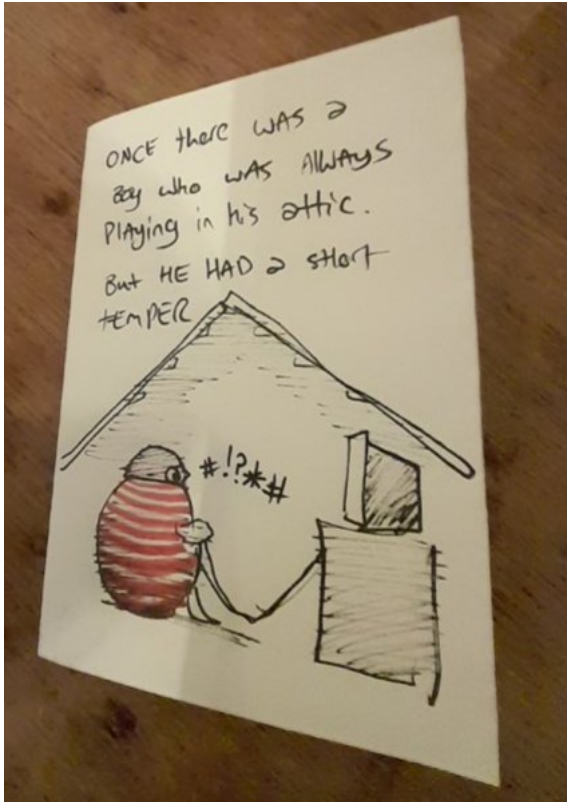 ONCE there WAS a
Boy who WAS AlWAYS
PlAying in his attic.
But HE HAD a short
tEMPER
#!?*#